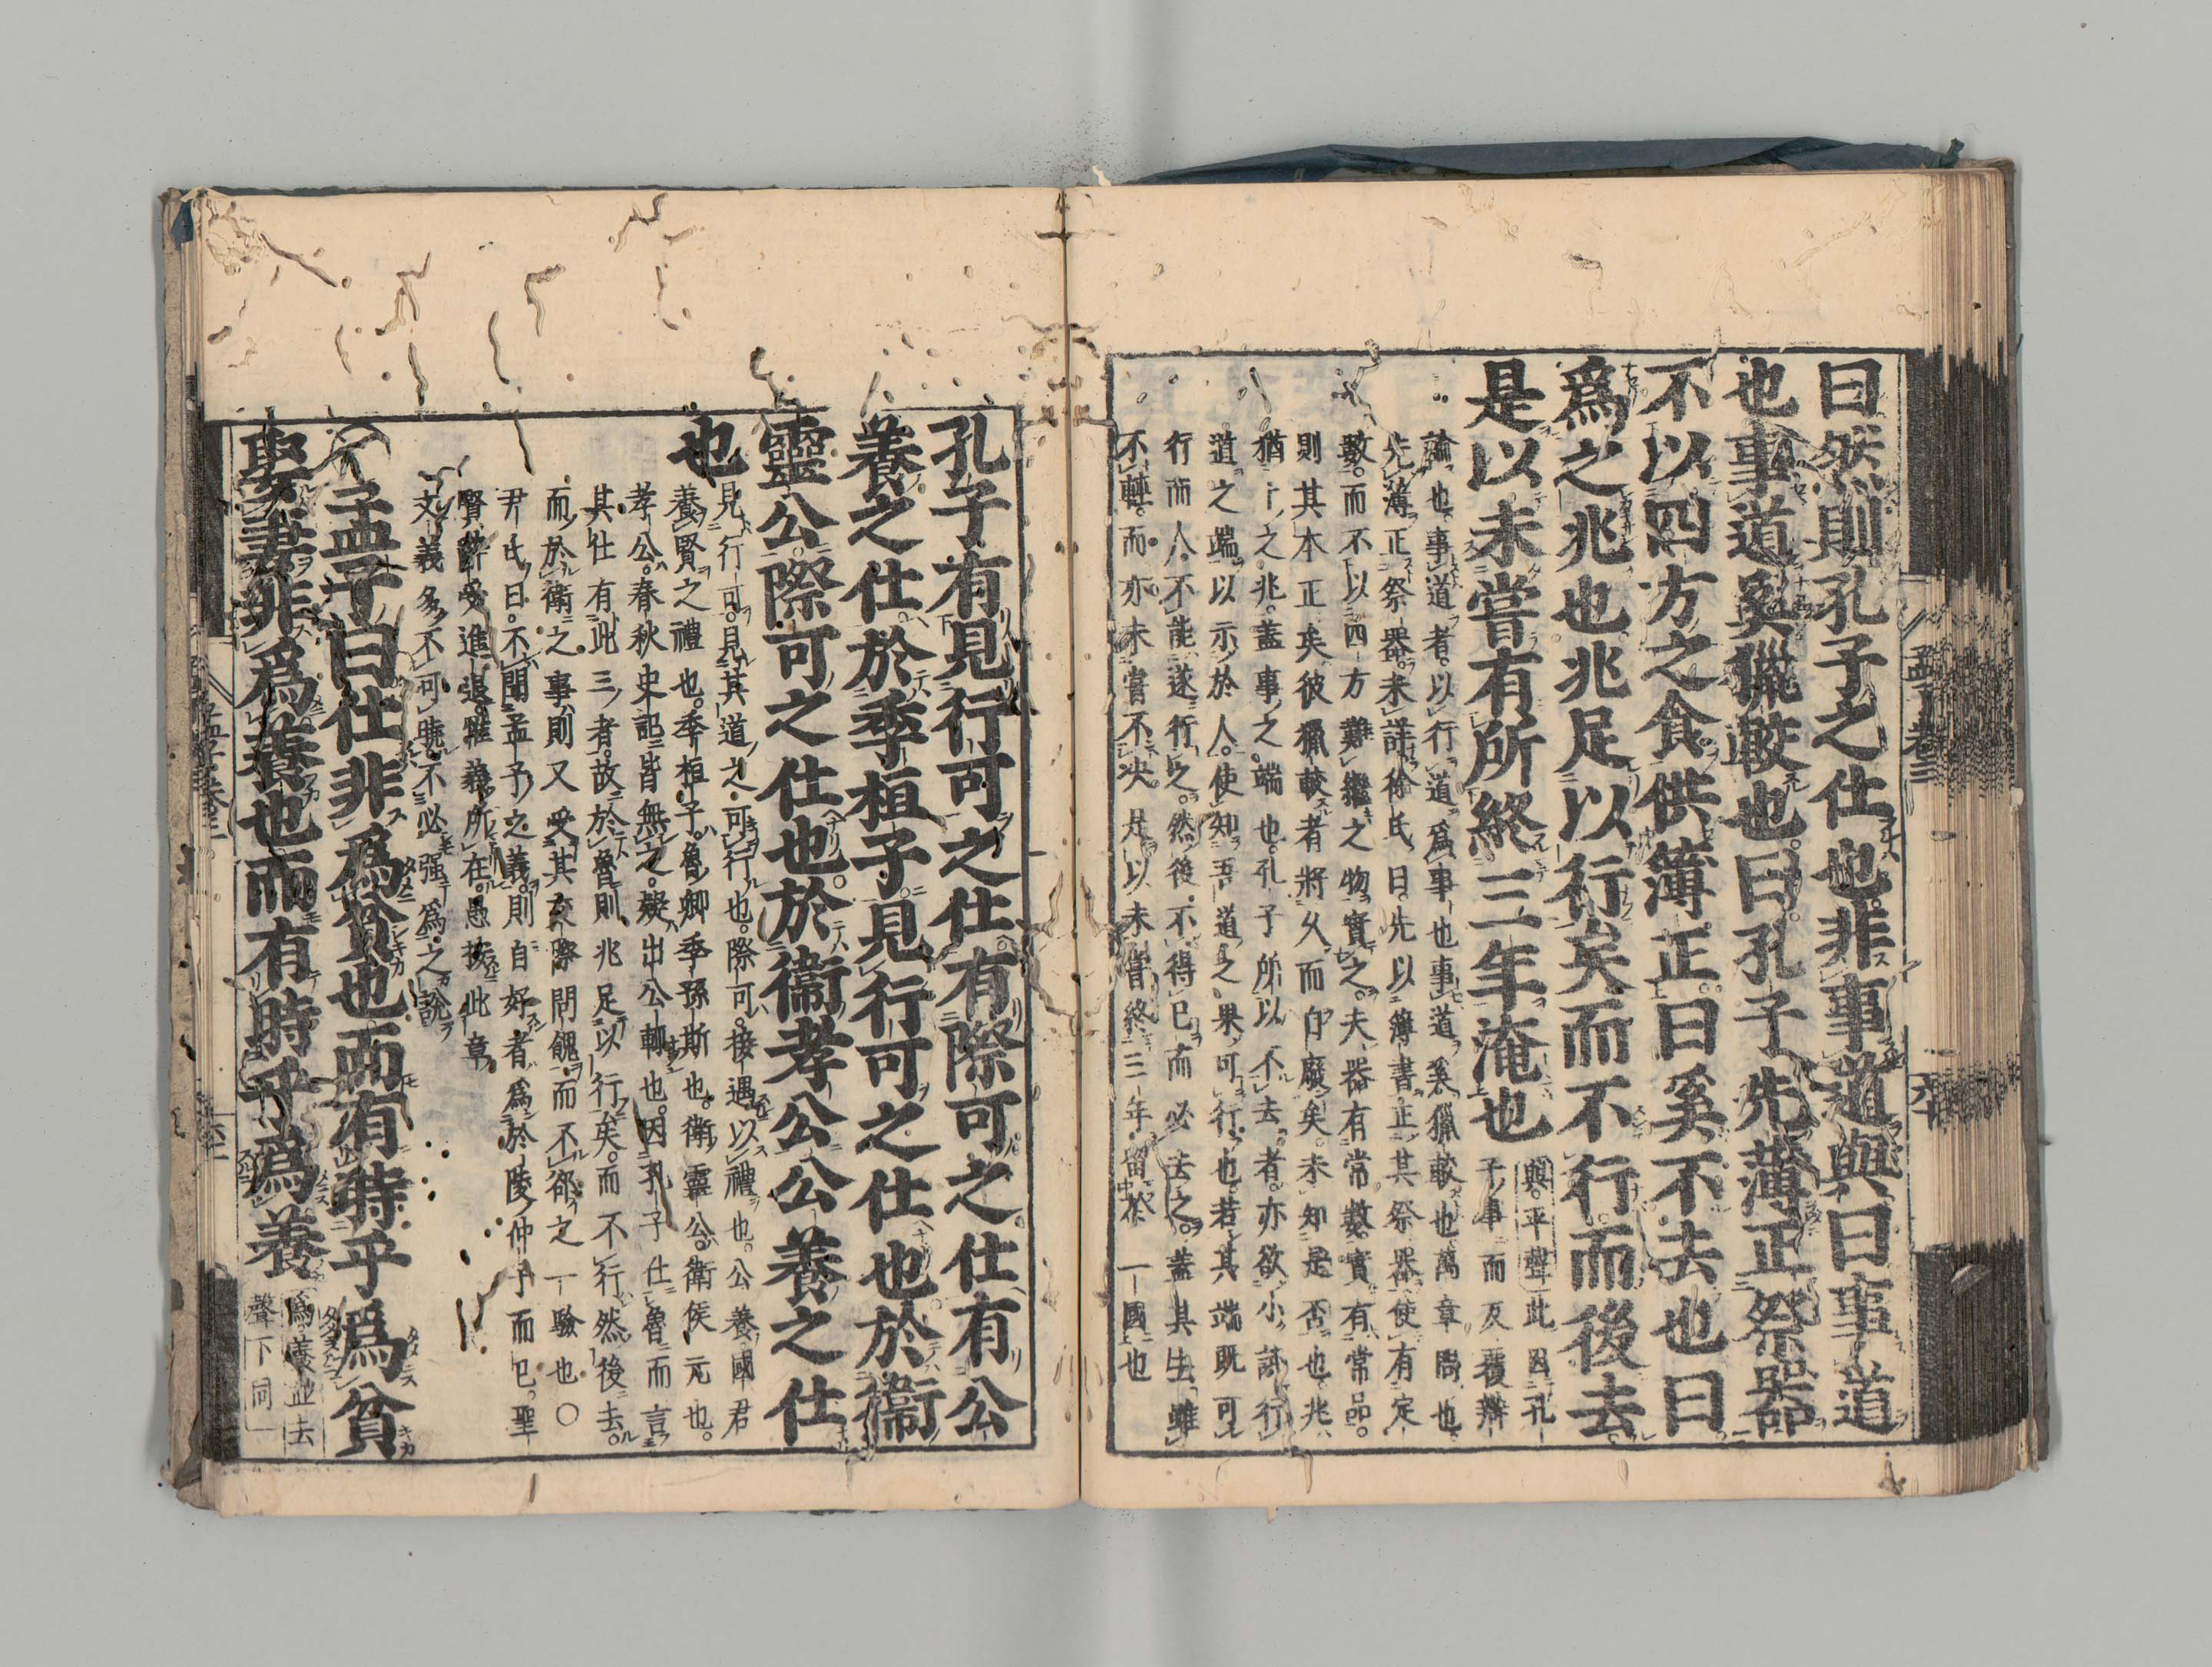 曰然則孔子之仕也非事道與曰事道
也事道奚獵較也曰孔子先薄正祭器
不以四方之食供簿正曰奚不去也曰
爲之兆也兆足以行矣而不行而後去
是以未嘗有所終三年淹也
與平聲此因孔
子事而反覆辯
論也事道者以行道爲事也事道奚獵較也萬章問也
先薄正祭器未詳徐氏曰先以簿書正其祭器使有定
數而不以四方難繼之物實之夫器有常數實有常品
則其本正矣彼獵較者將久而自廢矣未知是否也兆
猶卜之兆蓋事之端也孔子所以不去者亦欲小試行
道之端以示於人使知吾道之果可行也若其端既可
行而人不能遂行之然後不得已而必去之蓋其去雖
不輕而亦未嘗不決是以未嘗終三年留於一國也
孟子卷三
六十
孔子有見行可之仕有際可之仕有公
養之仕於季桓子見行可之仕也於衞
靈公際可之仕也於衞孝公公養之仕
也
見行可見其道之可行也際可接遇以禮也公養國君
養賢之禮也季桓子魯卿季孫斯也衞靈公衞侯元也
孝公春秋史記皆無之疑出公輒也因孔子仕魯而言
其仕有此三者故於魯則兆足以行矣而不行然後去
而於衞之事則又受其交際問餽而不卻之一驗也〇
尹氏曰不聞孟子之義則自好者爲於陵仲子而已聖
賢辭受進退惟義所在愚按此章
文義多不可曉不必强爲之說
孟子曰仕非爲貧也而有時乎爲貧
娶妻非爲養也而有時乎爲養
爲養並去
聲下同
孟子卷三